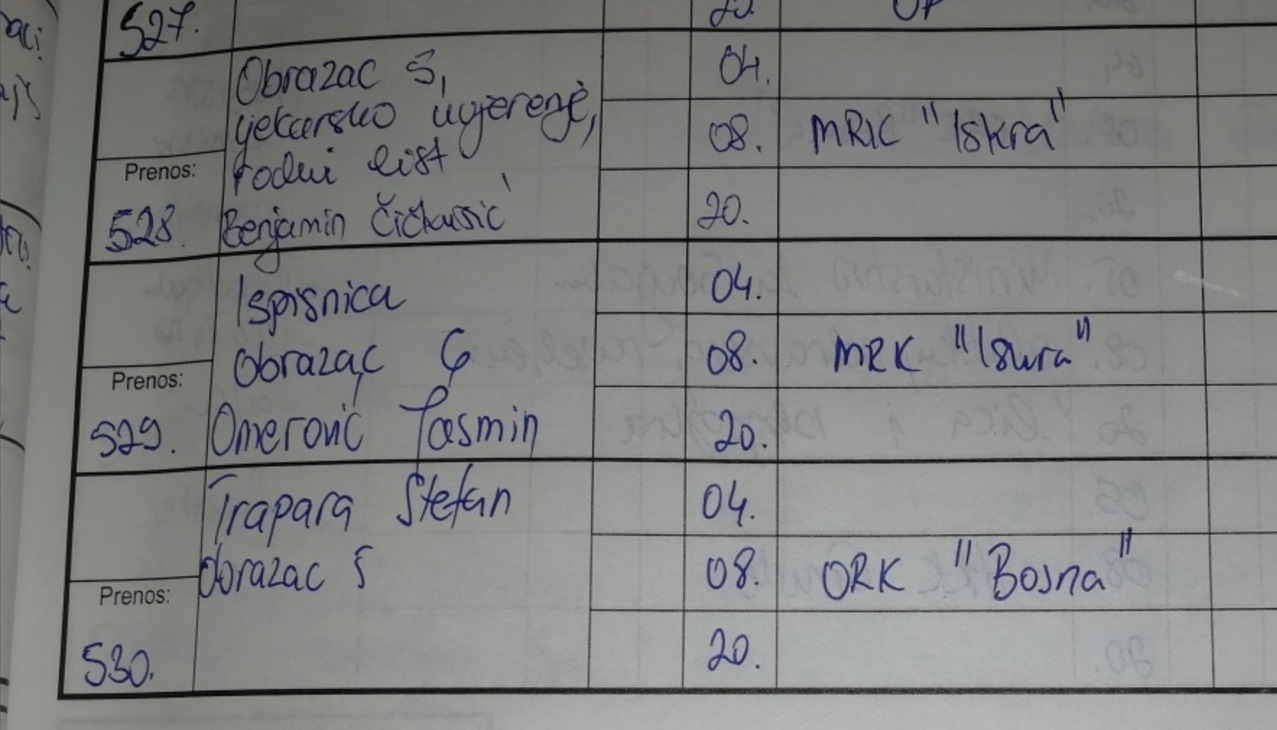 527.
20.
Obrazac 5,
ljekarsko uvjerenje,
rodni list
Benjamin Čičkušić
Prenos:
528.
04.
08. MRK "Iskra"
20.
Ispisnica
Obrazac 6
Omerović Jasmin
Prenos:
529.
04.
08. MRK "Iskra"
20.
Trapara Stefan
Obrazac 5
Prenos:
530.
04.
08. ORK "Bosna"
20.